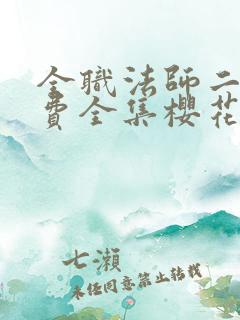 全職法師二
費全集櫻花
七瀨
未经同意禁止转载